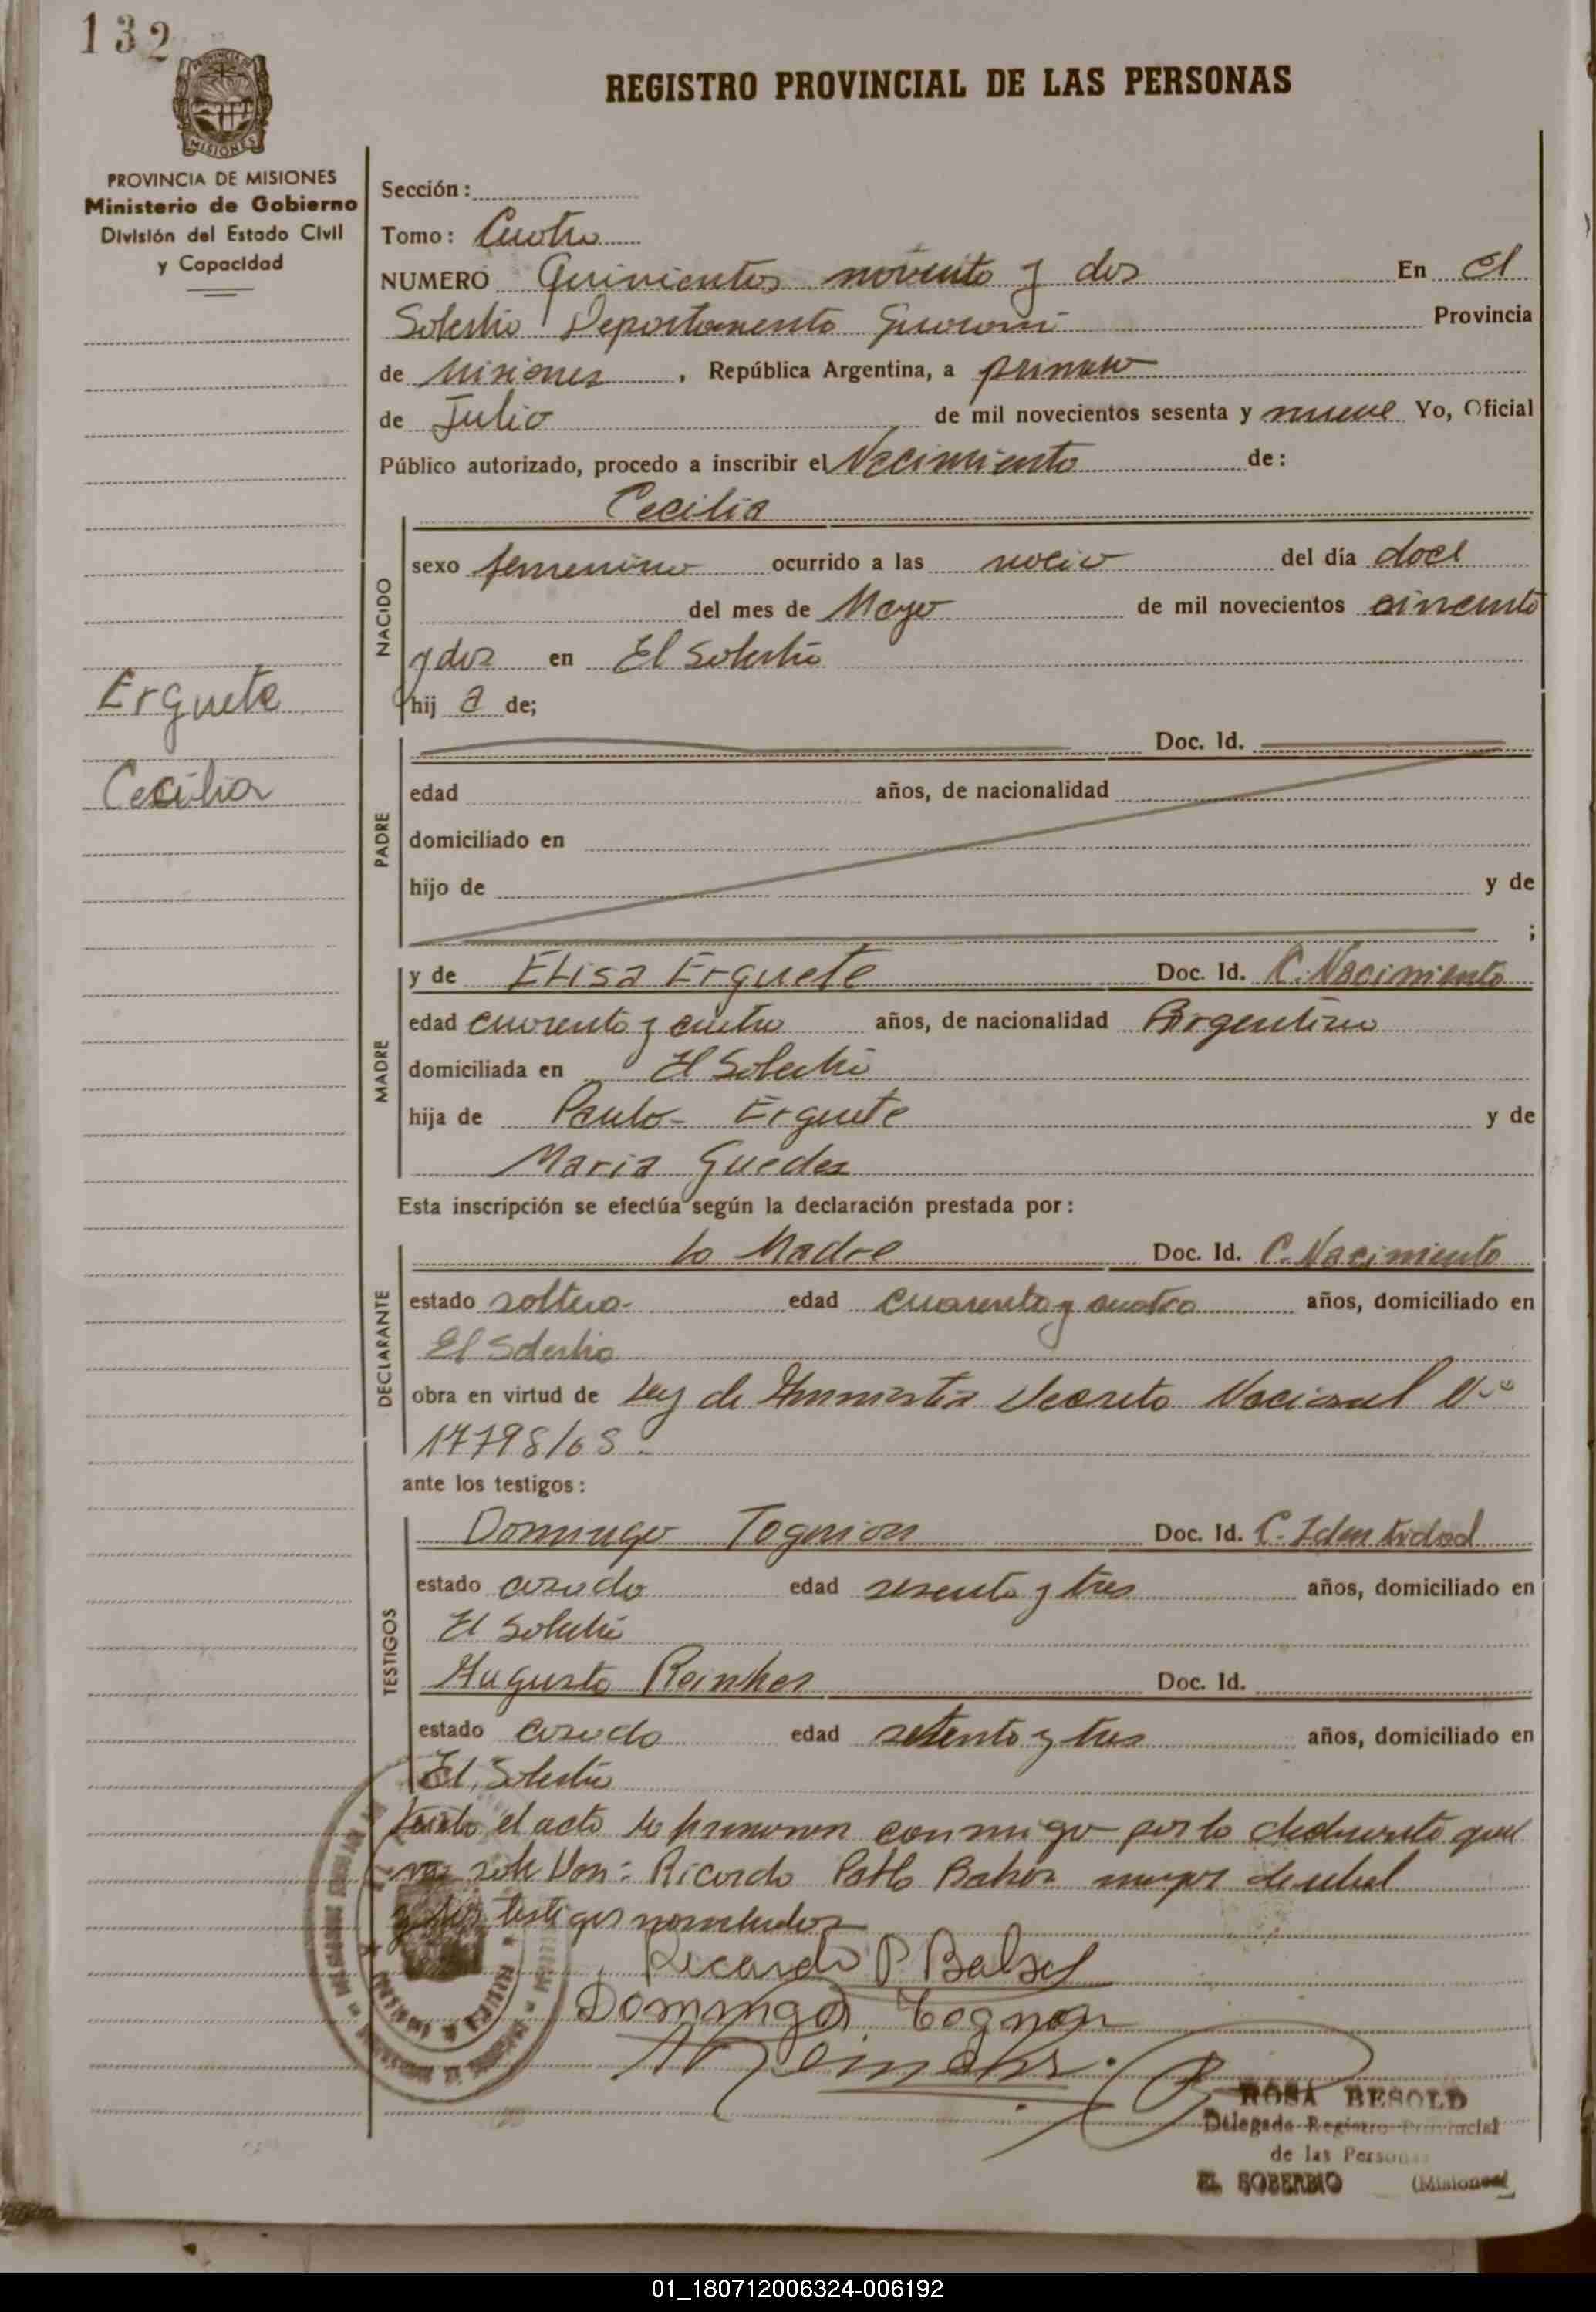 132
PROVINCIA DE MISIONES
REGISTRO PROVINCIAL DE LAS PERSONAS
PROVINCIA DE MISIONES
Ministerio de Gobierno
División del Estado Civil
y Capacidad
Sección:
Tomo: Cuatro
NUMERO Quinientos noventa y dos En El
Soberbio Departamento Guarani Provincia
de Misiones, República Argentina, a primero
de Julio de mil novecientos sesenta y nueve Yo, Oficial
Público autorizado, procedo a inscribir el Nacimiento de:
Cecilia
NACIDO
sexo femenino ocurrido a las del día doce
del mes de Mayo de mil novecientos cincuenta
y dos en El Soberbio
hij a de;
Erguete
Cecilia
PADRE
Doc. Id.
edad años, de nacionalidad
domiciliado en
hijo de y de
;
MADRE
y de Elisa Erguete Doc. Id. C. Nacimiento
edad cuarenta y cuatro años, de nacionalidad Argentina
domiciliada en El Soberbio
hija de Paulo Erguete y de
Maria Guedes
Esta inscripción se efectúa según la declaración prestada por:
DECLARANTE
La Madre Doc. Id. C. Nacimiento
estado soltera edad cuarenta y cuatro años, domiciliado en
El Soberbio
obra en virtud de Ley de Amnistia Decreto Nacional Nº
17798/68
ante los testigos:
TESTIGOS
Domingo Tognon Doc. Id. C. Identidad
estado casado edad sesenta y tres años, domiciliado en
El Soberbio
Augusto Reinkes Doc. Id.
estado casado edad setenta y tres años, domiciliado en
El Soberbio
el acto lo firmaron conmigo por la declarante que
Don: Ricardo Pablo mayor de edad
testigos nombrados
Ricardo P.
Domingo Tognon
ROSA BESOLD
Delegada Registro Provincial
de las Personas
EL SOBERBIO (Misiones)
01_180712006324-006192